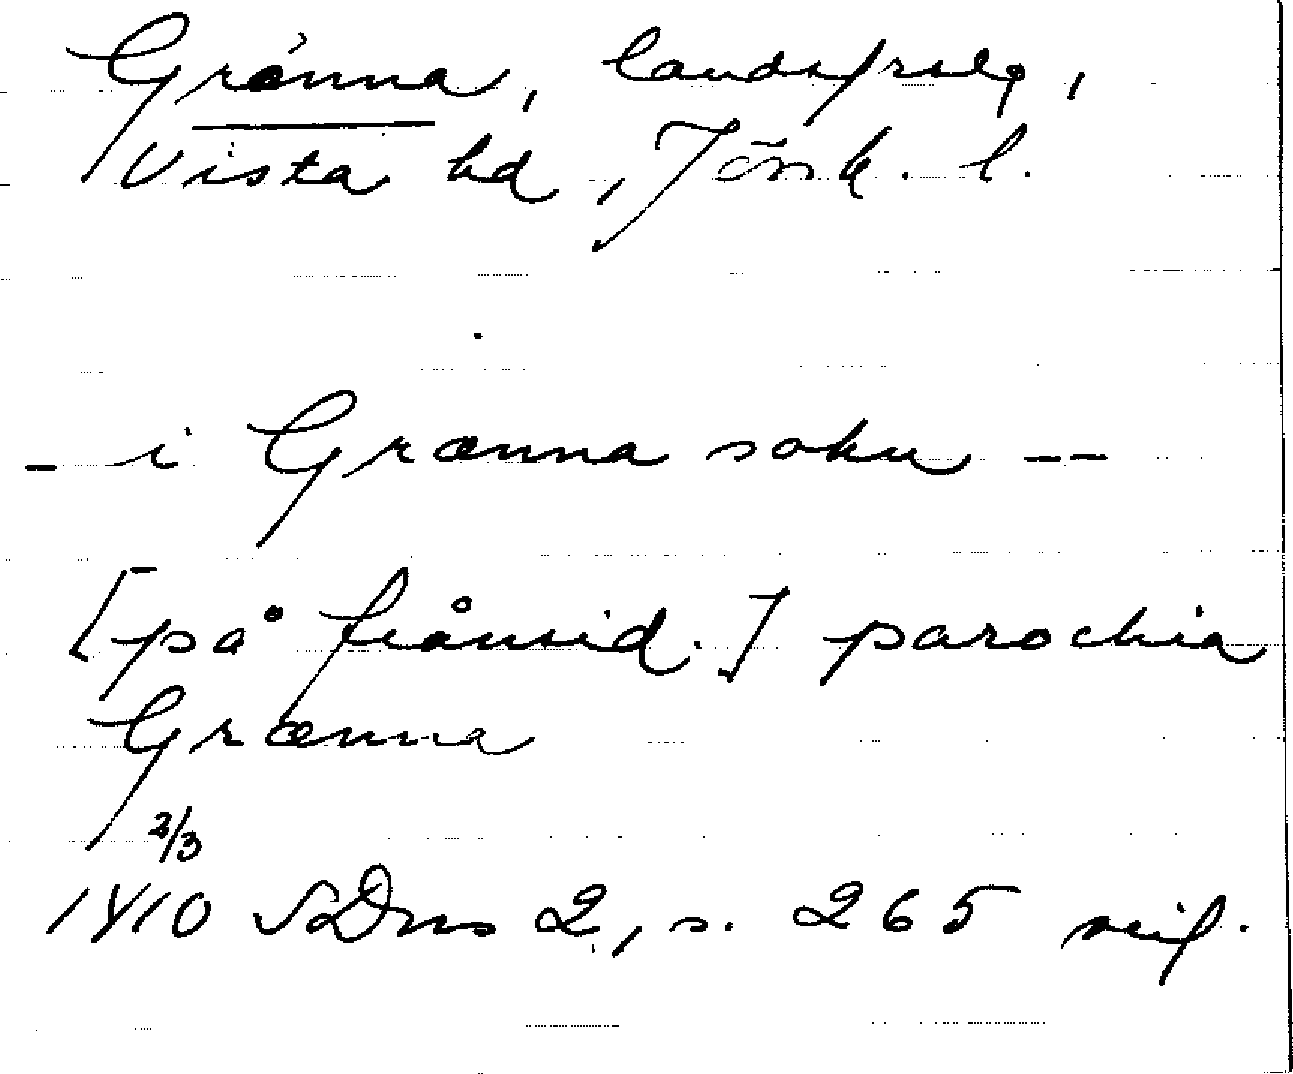 Gränna, landsfrslg,
Vista hd, Jönk. l.
- i Grænna sokn --
[på frånsid.] parochia
Grænna
2/3
1410 SDns 2, s. 265 sigl.